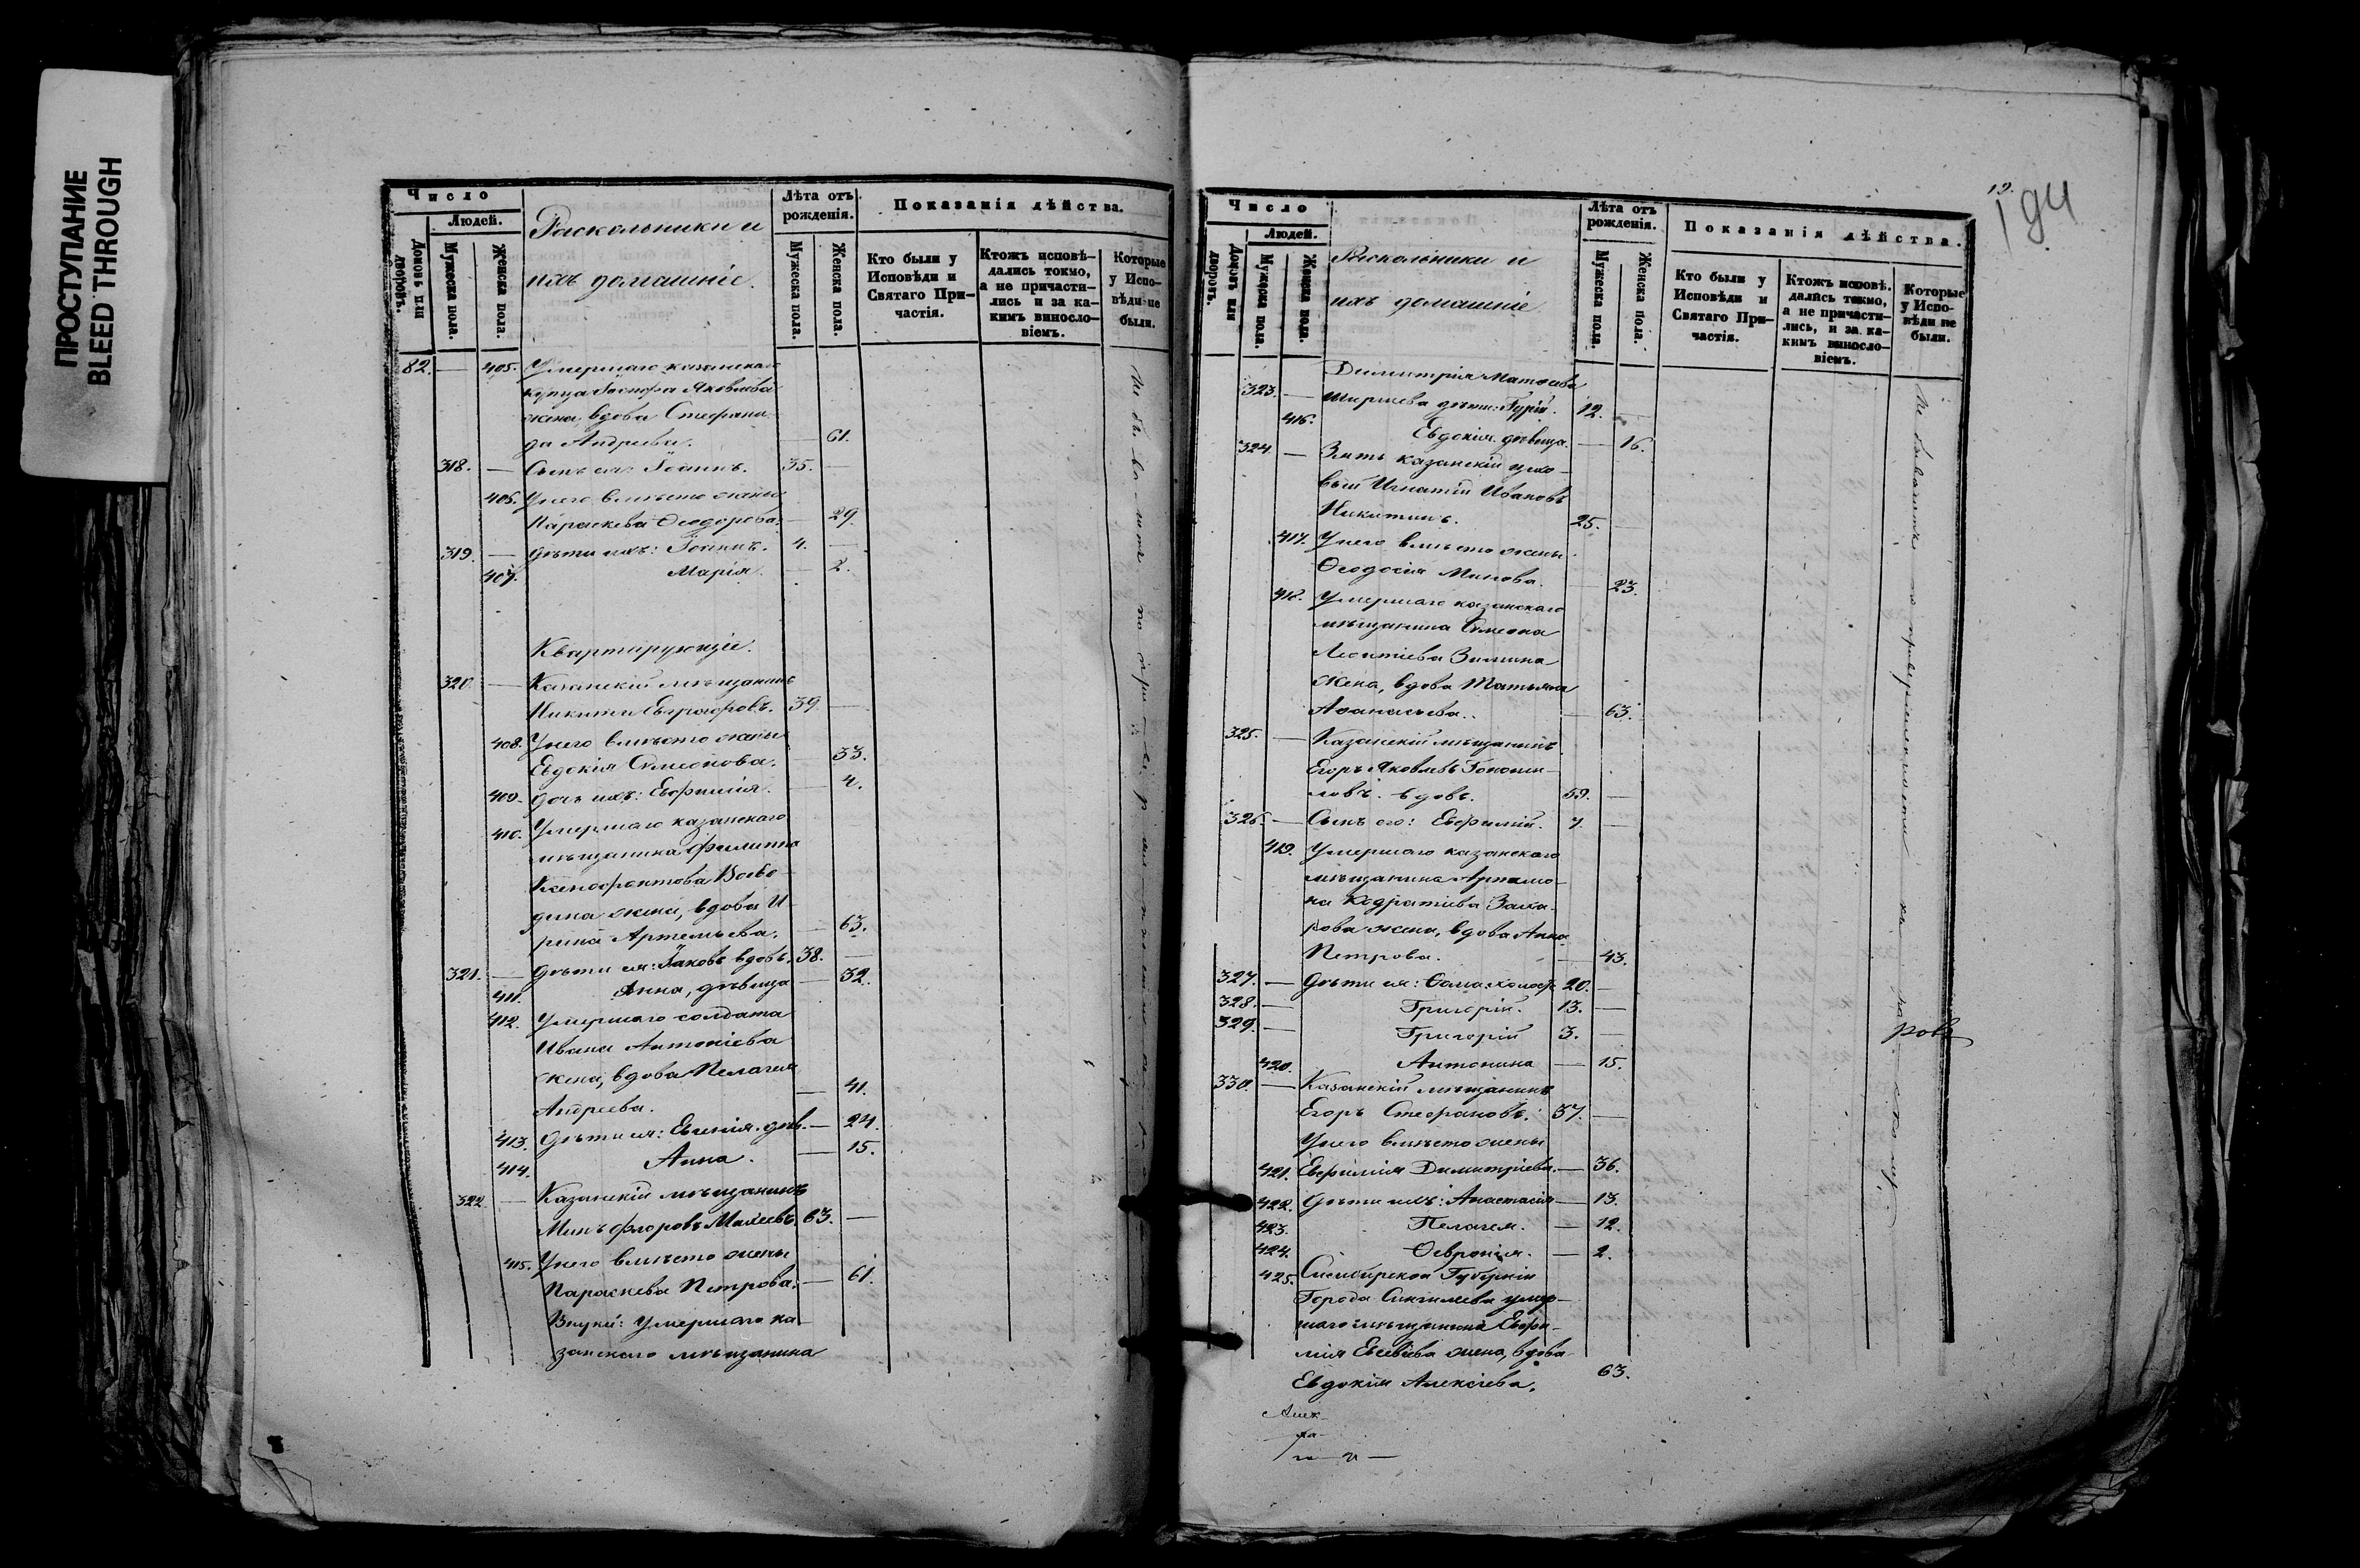 ПРОСТУПАНИЕ
BLEED THROUGH
Число
Людей.
Домовъ или дворовъ.
Мужеска пола.
Женска пола.
Раскольники и
ихъ домашніе.
Лѣта отъ
рожденія.
Мужеска пола.
Женска пола.
Показанія дѣйства.
Кто были у
Исповѣди и
Святаго При-
частія.
Ктожъ исповѣ-
дались токмо,
а не причасти-
лись и за ка-
кимъ виносло-
віемъ.
Которые
у Испо-
вѣди не
были.
82. — 405. Умершаго казанскаго
купца Іосифа Яковлева
жена, вдова Стефани-
да Андреева. — 61.
318. — Сынъ ея: Іоаннъ. 35. —
406. У него вмѣсто жены
Параскева Ѳеодорова. — 29.
319. — Дѣти ихъ: Іоаннъ. 4. —
407. Марія. — 2.
Квартирующіе.
320. — Казанскій мѣщанинъ
Никита Евграфовъ. 39. —
408. У него вмѣсто жены
Евдокія Симеонова. — 33.
409. Дочь ихъ: Евфимія. — 4.
410. Умершаго казанскаго
мѣщанина Филиппа
Ксенофонтова Воево-
дина жена, вдова И-
рина Артемьева. — 63.
321. — Дѣти ея: Іаковъ вдовъ. 38. —
411. Анна, дѣвица — 32.
412. Умершаго солдата
Ивана Антоніева
жена, вдова Пелагея
Андреева. — 41.
413. Дѣти ея: Евгенія. дѣв. — 24.
414. Анна. — 15.
322 — Казанскій мѣщанинъ
Минъ Флоровъ Михеевъ. 63. —
415. У него вмѣсто жены
Параскева Петрова. — 61.
Внуки: умершаго ка-
занскаго мѣщанина
19.
194
Число
Людей.
Домовъ или дворовъ.
Мужеска пола.
Женска пола.
Раскольники и
ихъ домашніе
Лѣта отъ
рожденія.
Мужеска пола.
Женска пола.
Показанія дѣйства.
Кто были у
Исповѣди и
Святаго При-
частія.
Ктожъ исповѣ-
дались токмо,
а не причасти-
лись, и за ка-
кимъ виносло-
віемъ.
Которые
у Испо-
вѣди не
были.
Димитрія Матѳеева
323. — дѣти: Гурій. 12. —
416. Евдокія. дѣвица. — 16.
324. — Зять казанскій цехо-
вый Игнатій Ивановъ
Никитинъ. 25. —
417. У него вмѣсто жены
Ѳеодосія Минова. — 23.
418. Умершаго казанскаго
мѣщанина Симеона
Леонтіева Зимина
жена, вдова Татьяна
Аѳанасьева. — 63.
325. — Казанскій мѣщанинъ
Егоръ Яковлевъ
вдовъ. 59. —
326. — Сынъ его: Евфимій. 7. —
419. Умершаго казанскаго
мѣщанина Артамо-
на Кодратіева Заха-
рова жена, вдова Анна
Петрова. — 43.
327. — Дѣти ея: Ѳома. холост. 20. —
328. — Григорій. 13. —
329. — Григорій 3. —
420. Антонина — 15.
330. — Казанскій мѣщанинъ
Егоръ Стефановъ. 37. —
У него вмѣсто жены
421. Евфимія Димитріева. — 36.
422. Дѣти ихъ: Анастасія — 13.
423. Пелагея. — 12.
424. Ѳевронія. — 2.
425. Симбирской Губерніи
Города Сингилеева умер-
шаго мѣщанина Евфи-
мія Евсевіева жена, вдова
Евдокія Алексіева. 63.
Не бываютъ по приверженности къ расколу.